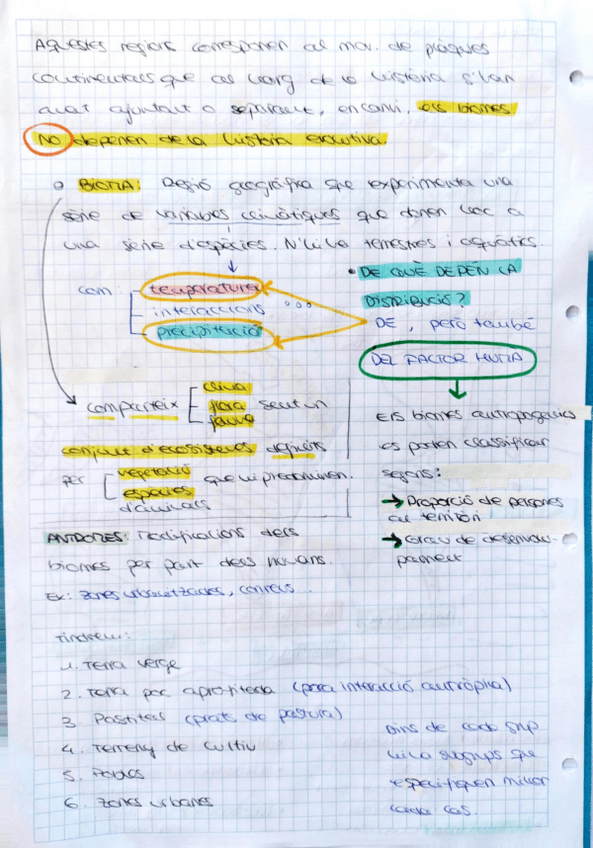 Aquestes regions corresponen al mov. de plaques
continentals que al llarg de la història s'han
anat ajuntant o separant, en canvi, els biomes
NO depenen de la història evolutiva.
BIOMA: Regió geogràfica que experimenta una
sèrie de variables climàtiques que donen lloc a
una sèrie d'espècies. N'hi ha terrestres i aquàtics.
com: temperatura
interaccions ...
precipitació
• DE QUÈ DEPÈN LA
DISTRIBUCIÓ?
DE, però també
DEL FACTOR HUMÀ
comparteix clima
flora sent un
fauna
conjunt d'ecosistemes definits
per vegetació que hi predominen.
espècies
d'animals
Els biomes antropogènics
es poden classificar
segons:
→ Proporció de persones
al territori
→ Grau de desenvolu-
pament
ANTROMES: Modificacions dels
biomes per part dels humans.
Ex: zones urbanitzades, conreus...
Tindrem:
1. Terra verge
2. Terra poc aprofitada (poca interacció antròpica)
3. Pastures (prats de pastura)
4. Terreny de cultiu
5. Pobles
6. Zones urbanes
Dins de cada grup
hi ha subgrups que
especifiquen millor
cada cas.